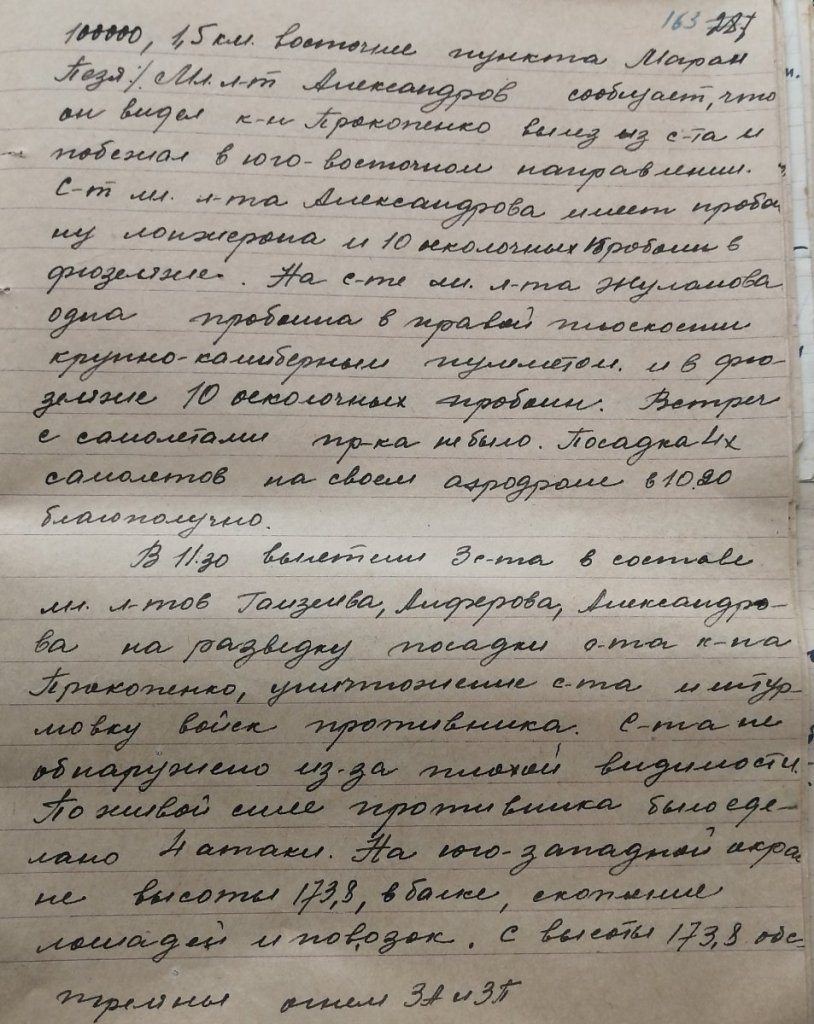 163 287
100000, 1,5 км. восточнее пункта Маран
Пезя/. Мл. л-т Александров сообщает, что
он видел к-н Прокопенко вылез из с-та и
побежал в юго-восточном направлении.
С-т мл. л-та Александрова имеет пробои
ну лонжерона и 10 осколочных пробоин в
фюзеляже. На с-те мл. л-та Жуламова
одна пробоина в правой плоскости
крупно-калиберным пулеметом. и в фю-
зеляже 10 осколочных пробоин. Встреч
с самолетами пр-ка не было. Посадка 4х
самолетов на своем аэродроме в 10.20
благополучно.
В 11.30 вылетели 3 с-та в составе
мл. л-тов Алферова, Александро-
ва на разведку посадки с-та к-на
Прокопенко, уничтожение с-та и штур-
мовку войск противника. С-та не
обнаружено из-за плохой видимости.
По живой силе противника было сде-
лано 4 атаки. На юго-западной окраи
не высоты 173,8, в балке, скопление
лошадей и повозок. С высоты 173,8 обс-
треляны огнем ЗА и ЗП